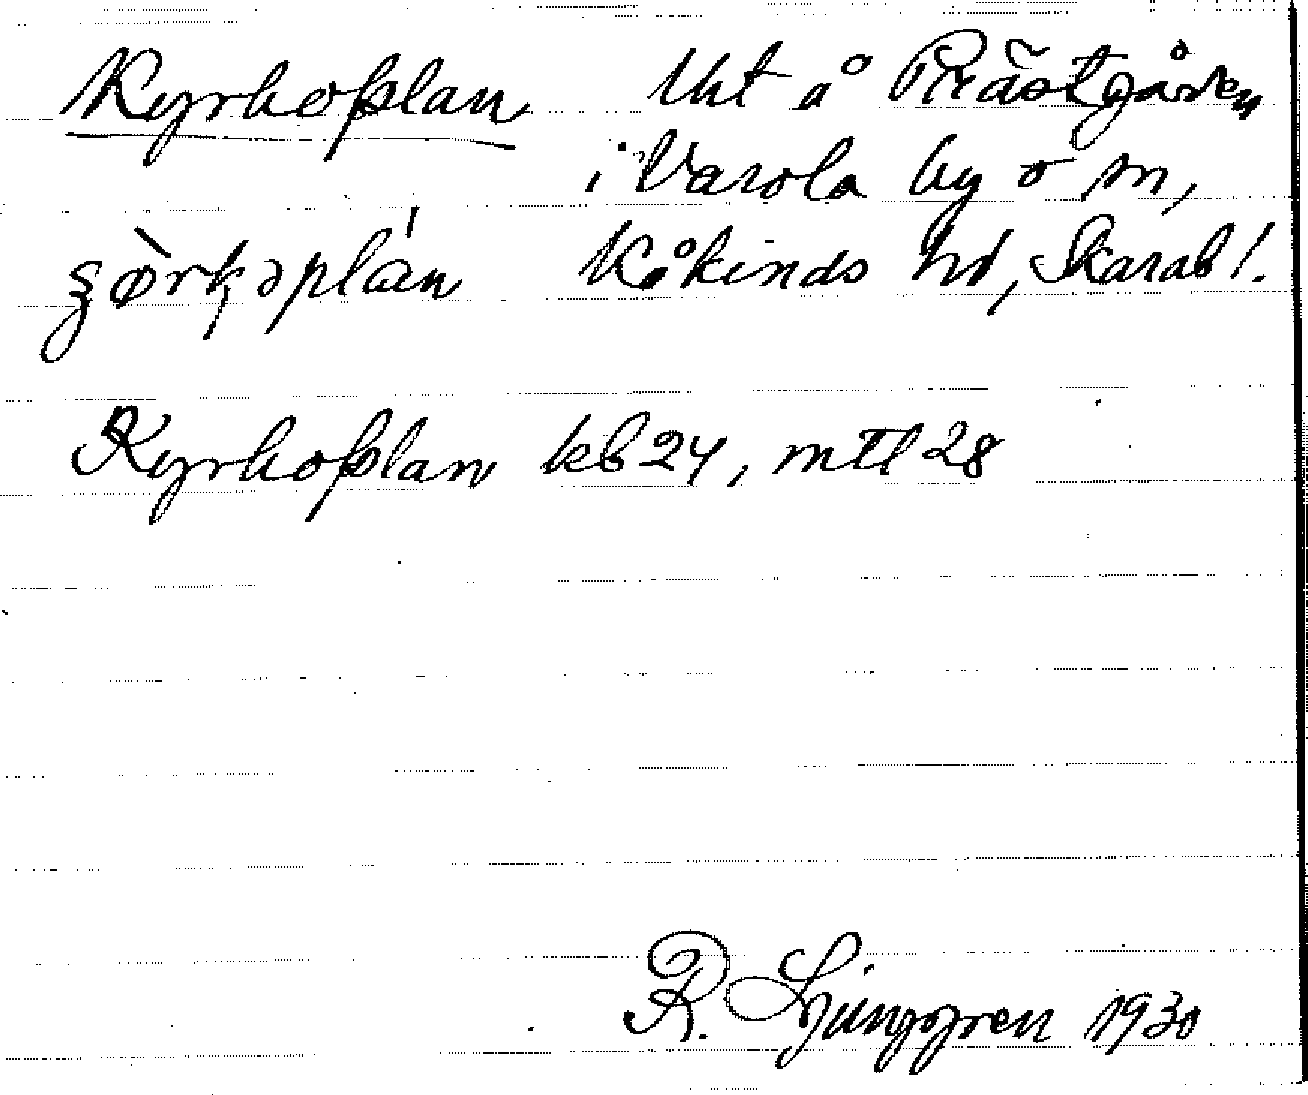 Kyrkoplan Uht å Prästgården
i Varola by o sn,
Kåkinds hd, Skarab l.
Kyrkoplan kb 24, mtl 28
R. Ljunggren 1930